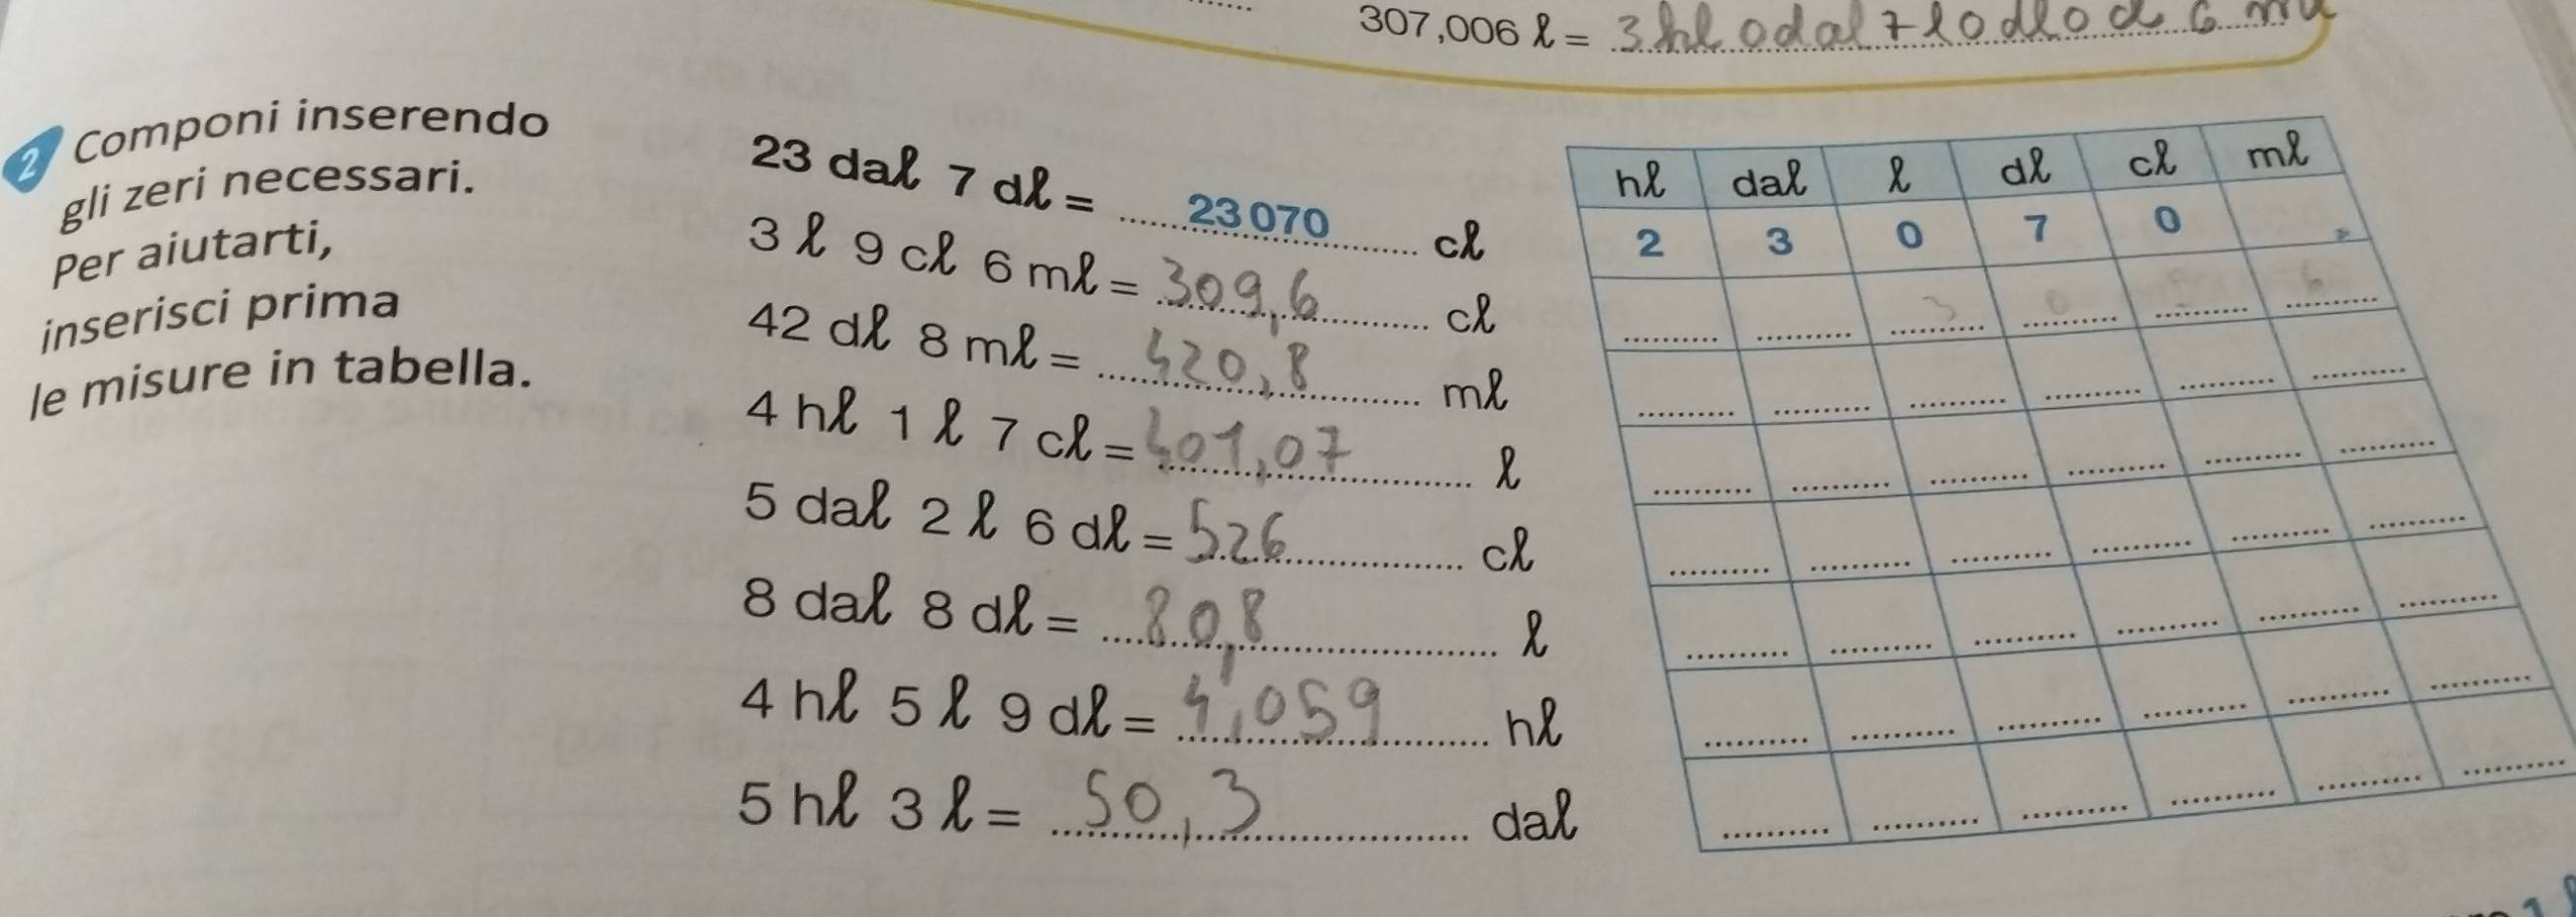 307,006 ℓ = 3 hl 0 dal 7 l 0 dl 0 cl 6 ml
2 Componi inserendo
gli zeri necessari.
Per aiutarti,
inserisci prima
le misure in tabella.
23 daℓ 7 dℓ = 23 070 cℓ
3 ℓ 9 cℓ 6 mℓ = 309,6 cℓ
42 dℓ 8 mℓ = 420,8 mℓ
4 hℓ 1 ℓ 7 cℓ = 401,07 ℓ
5 daℓ 2 ℓ 6 dℓ = 526 cℓ
8 daℓ 8 dℓ = 80,8 ℓ
4 hℓ 5 ℓ 9 dℓ = 4,059 hℓ
5 hℓ 3 ℓ = 50,3 daℓ
hℓ daℓ ℓ dℓ cℓ mℓ
2 3 0 7 0
3 0 9 6